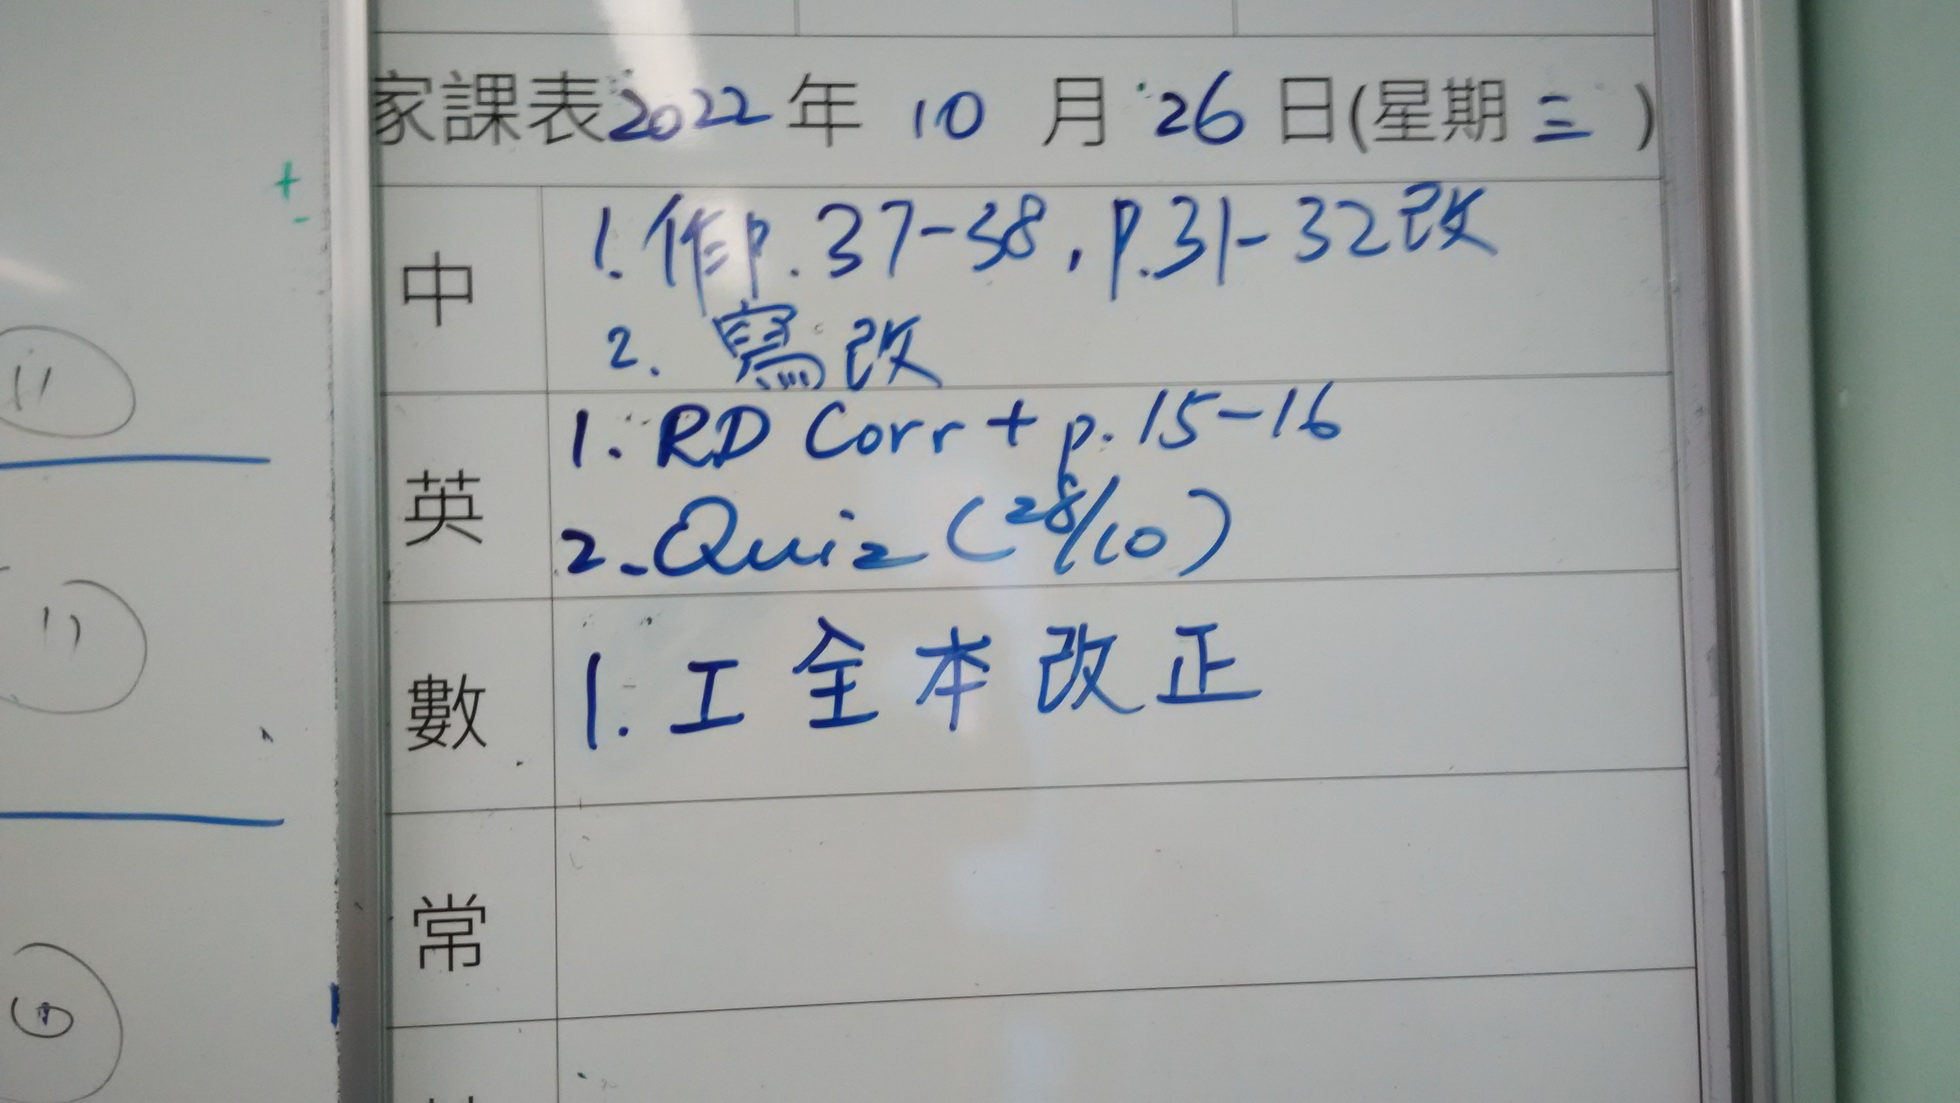 家課表2022年 10 月 26 日(星期 三 )
中
1. 作p.37-38, p.31-32改
2. 寫改
英
1. RD Corr + p.15-16
2. Quiz (28/10)
數
1. 工 全 本 改 正
常
11
11